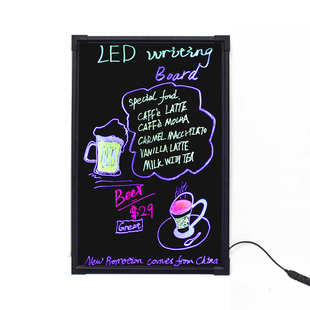 LED writing
Board
special food
CAFFè LATTE
CAFFè MOCHA
CARMEL MACCHIATO
VANILLA LATTE
MILK WITH TEA
Beer
$29
Great
New Promotion comes from China